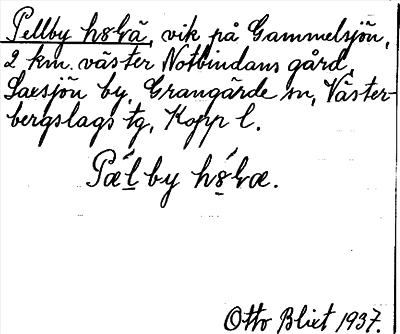 Pellby hålvä, vik på Gammelsjön,
2 km. väster Notbindans gård,
Saxsjön by, Grangärde sn, Väster-
bergslags tg, Kopp l.
Otto Blixt 1937.